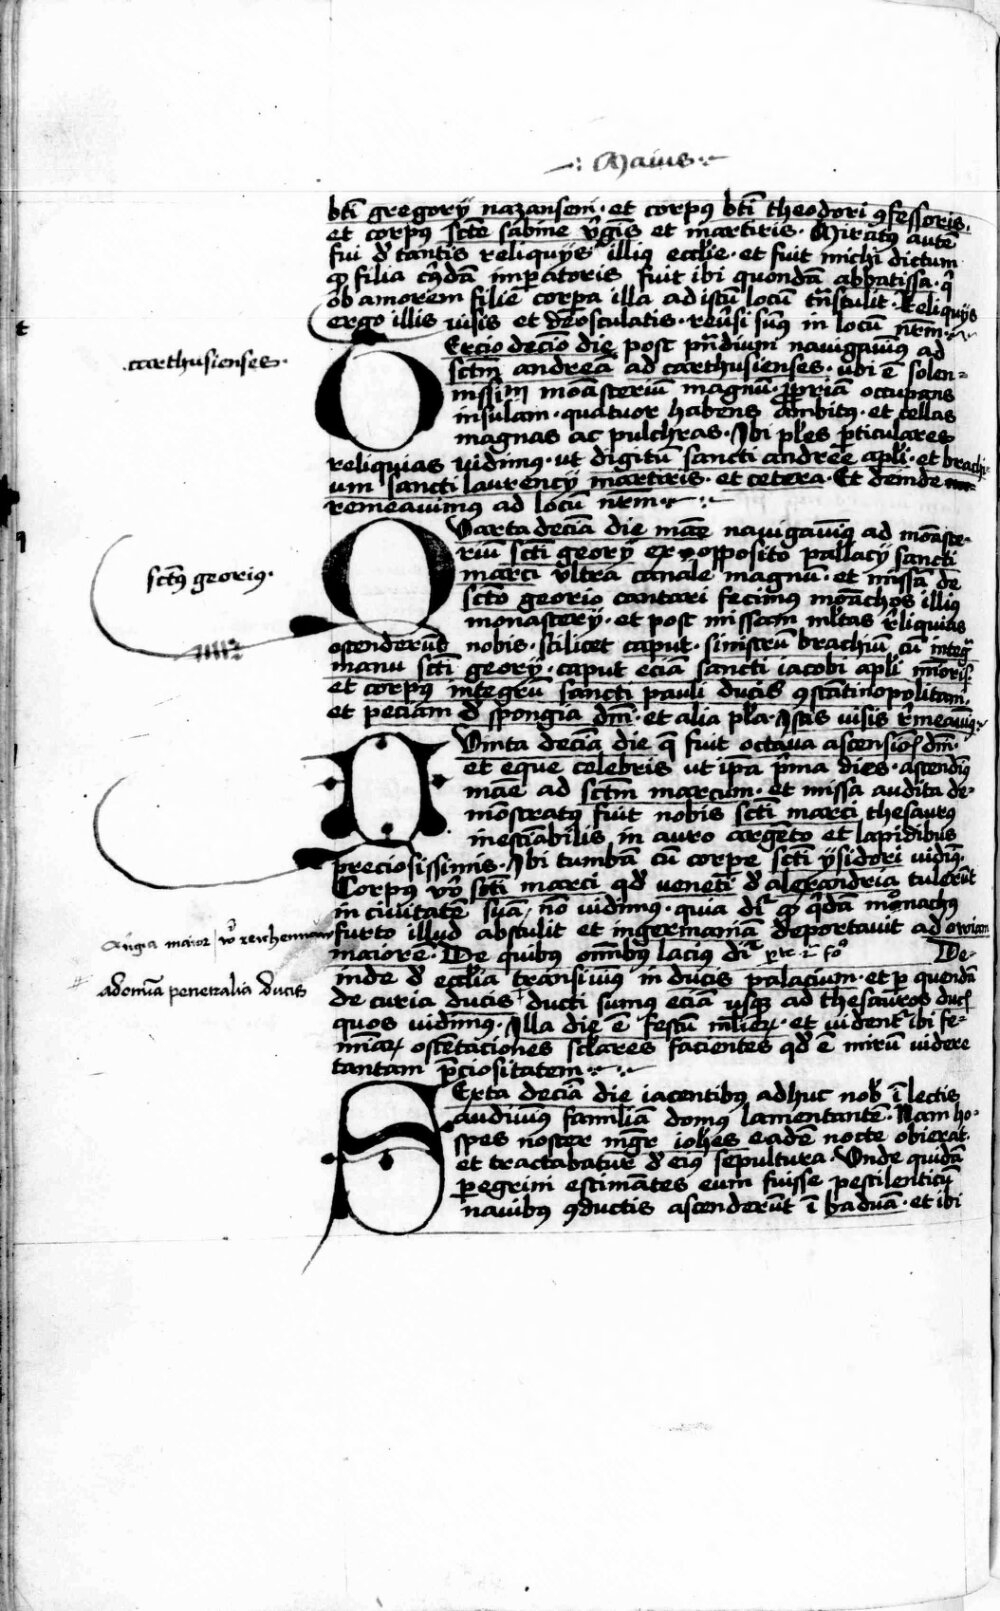 Maius
bti gregorÿ nazanseni · et corpus bti theodori ꝯfessoris.
et corpus scte sabine vgis et martiris · Miratus aute
fui d' tantis reliquijs illius ecclie · et fuit michi dictum
ꝙ filia cuidā imperatoris fuit ibi quondā abbatissa · q
ob amorem filie corpora illa ad istū locū trāstulit · Reliquijs
ergo illis visis et deosculatis · reūsi sumus in locū nrm ·
Ercio decio die post prādium nauigauimus ad
sctm andreā ad carthusienses · ubi ē solen=
nissim monasterium magnū · ꝓpriam occupans
insulam · quatuor habens ambitus · et cellas
magnas ac pulchras · Ibi plēs particulares
reliquias vidimus · ut digitū sancti andree apli · et brachi
um sancti laurencÿ martiris · et cetera · Et deinde
remeauimus ad locū nrm ·
Varta decīa die mae nauigauimus ad monaste-
riū scti georÿ ex opposito pallacÿ sancti
marci vltra canale magnū · et missā de
scto georio cantari fecimus monachos illius
monasterÿ · et post missam mltas reliquias
ostenderūt nobis · scilicet caput · sinistrū brachiū cū integra
manu scti georÿ · caput eciā sancti iacobi apli minoris ·
et corpus integrū sancti pauli ducis ꝯstantinopolitani
et peciam d' spongia dmi · et alia plra · Istis visis remeauimus
Vinta decīa die q fuit octaua ascensiois dmi ·
et eque celebris ut ipa prima dies · ascendimus
mae ad sctm marcum · et missa audita de-
mōstratus fuit nobis scti marci thesaurus
inestiabilis in auro argēto et lapidibus
preciosissimis · Ibi tumbā cū corpe scti ysidori vidimus.
Corpus vō scti marci qd' veneti d' alexandria tulerūt
in ciuitatē suā / nō vidimus · quia dr ꝙ qdā monachus
furto illud abstulit et in germaniā deportauit ad owiam
maiorē · De quibus omibus lacius dr De-
inde d' ecclīa transiuimus in ducis palacium · et p quendā
de curia ducis ducti sumus eciā usqz ad thesauros ducis
quos vidimus · Illa die ē festū mlierꝝ · et videntr ibi fe-
minarꝝ ostētaciones sclares facientes qd' ē mirū videre
tantam preciositatem ·
Exta decīa die iacentibus adhuc nobis ī lectis
audiuimus familiā domus lamentantē · Nam ho-
spes noster mgr iohēs eadē nocte obierat
et tractabatur d' eius sepultura · Vnde quidā
peregrini estimātes eum fuisse pestilenticū
nauibus ꝯductis ascenderūt ī baduā · et ibi
carthusienses ·
sctus georius ·
Augia maior / vō reichennaw
ad omia penetralia ducis